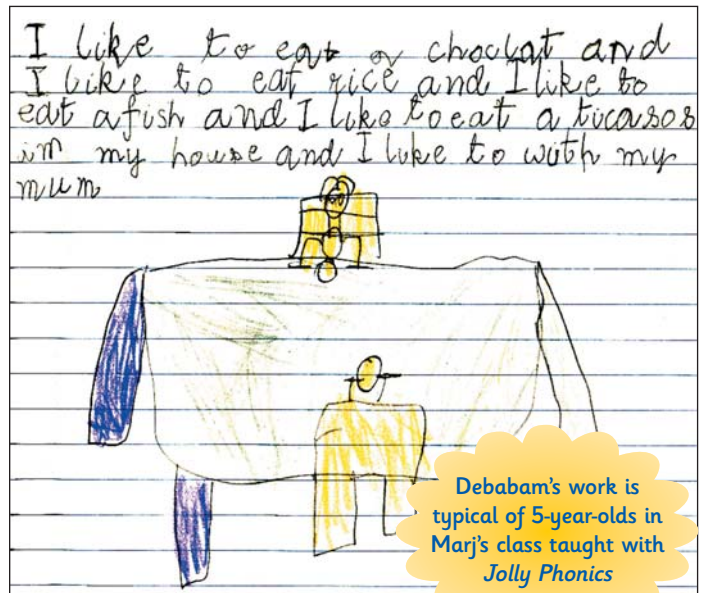 I like to eat a choclat and
I like to eat rice and I like to
eat a fish and I like to eat a ticasos
im my house and I like to with my
mum
Debabam's work is
typical of 5-year-olds in
Marj's class taught with
Jolly Phonics